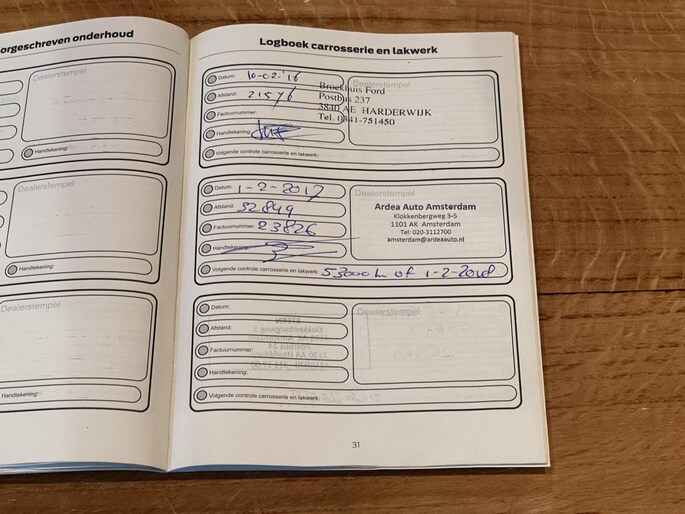 orgeschreven onderhoud
Dealerstempel
Handtekening:
Dealerstempel
Handtekening:
Dealerstempel
Handtekening:
Logboek carrosserie en lakwerk
Datum: 10-02-'16
Afstand: 21576
Factuurnummer:
Handtekening:
Volgende controle carrosserie en lakwerk:
Dealerstempel
Broekhuis Ford
Postbus 237
3840 AE HARDERWIJK
Tel. 0341-751450
Datum: 1-2-2017
Afstand: 32849
Factuurnummer: 23826
Handtekening:
Volgende controle carrosserie en lakwerk: 53000 km of 1-2-2018
Dealerstempel
Ardea Auto Amsterdam
Klokkenbergweg 3-5
1101 AK Amsterdam
Tel: 020-3112700
amsterdam@ardeaauto.nl
Datum:
Afstand:
Factuurnummer:
Handtekening:
Volgende controle carrosserie en lakwerk:
Dealerstempel
31